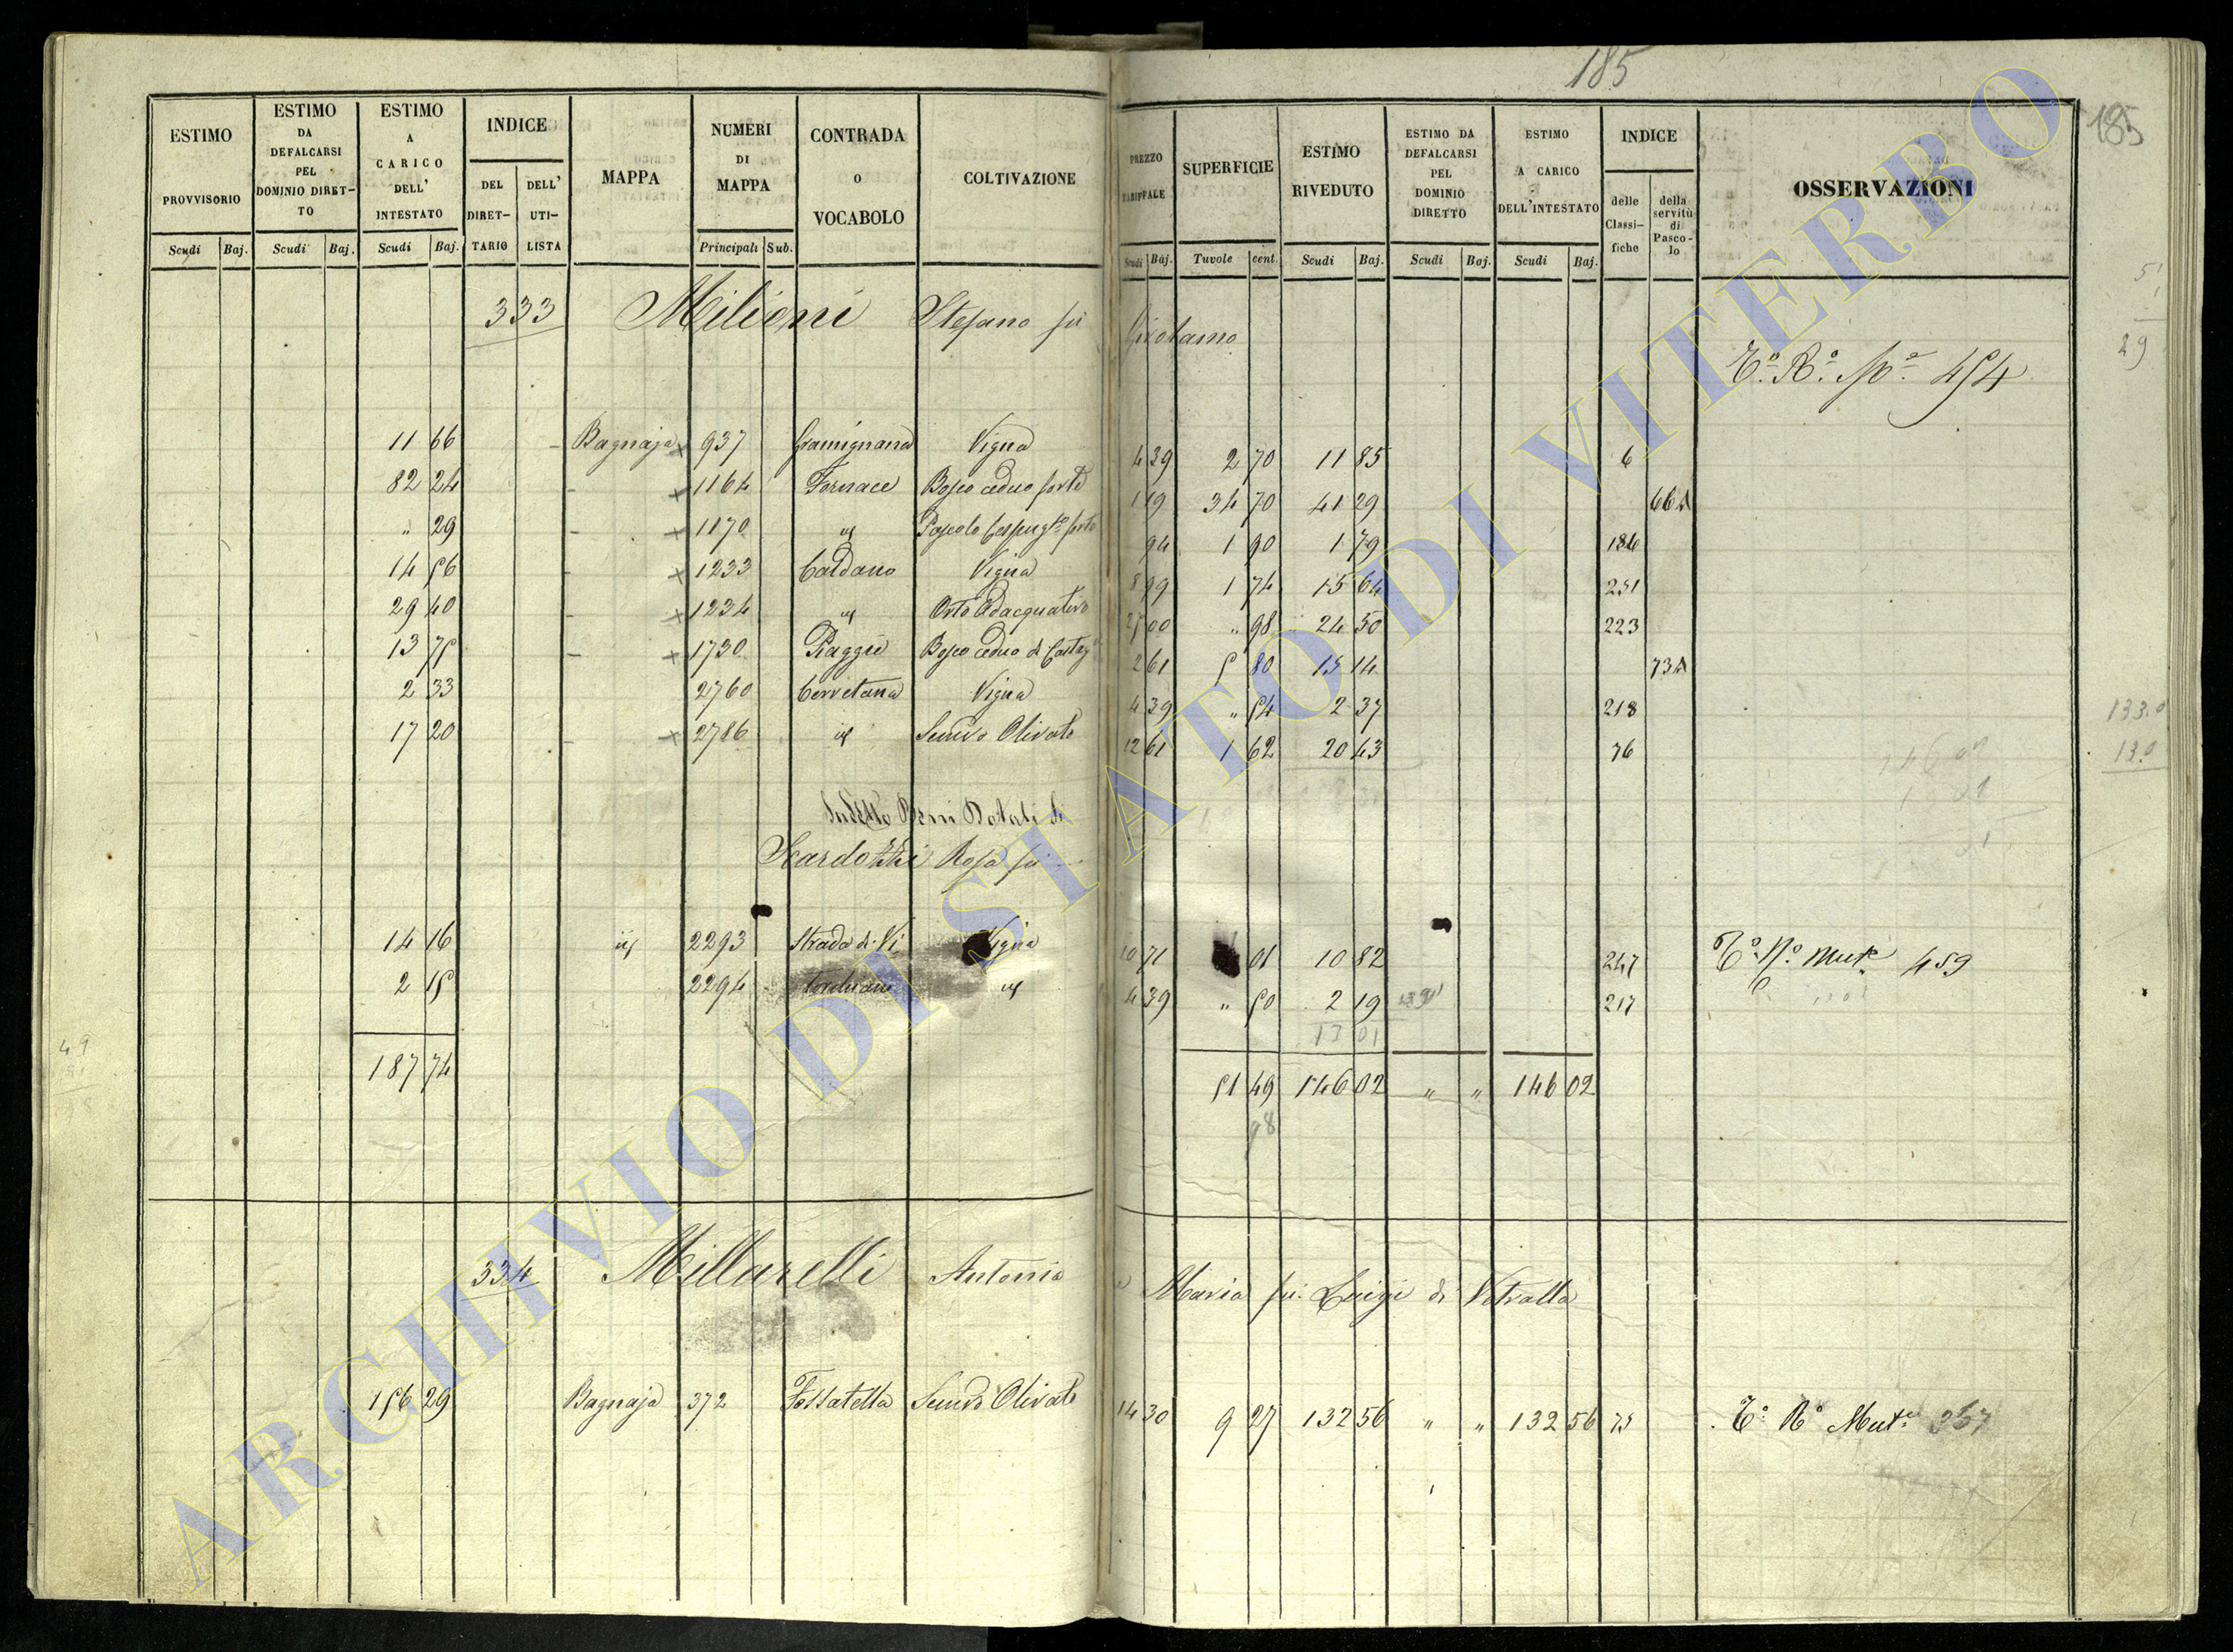 185
185
ESTIMO PROVVISORIO
ESTIMO DA DEFALCARSI PEL DOMINIO DIRET-TO
ESTIMO A CARICO DELL' INTESTATO
INDICE
DEL DIRET-TARIO
DELL' UTI-LISTA
MAPPA
NUMERI DI MAPPA
CONTRADA O VOCABOLO
COLTIVAZIONE
PREZZO TARIFFALE
SUPERFICIE
ESTIMO RIVEDUTO
ESTIMO DA DEFALCARSI PEL DOMINIO DIRETTO
ESTIMO A CARICO DELL'INTESTATO
INDICE
delle Classi-fiche
della servitù di Pasco-lo
OSSERVAZIONI
Scudi Baj. Scudi Baj. Scudi Baj. Principali Sub. Scudi Baj. Tavole cent. Scudi Baj. Scudi Baj. Scudi Baj.
333 Milioni Stefano fù Girolamo
T.° R.° N.° 454
11 66 Bagnaja 937 Gramignana Vigna 4 39 2 70 11 85 6
82 24 1164 Fornace Bosco ceduo forte 1 19 34 70 41 29 66A
" 29 1170 id Pascolo Cespug.to forte 94 1 90 1 79 186
14 56 1233 Caldano Vigna 8 99 1 74 15 64 251
29 40 1234 id Orto Adacquativo 25 00 " 98 24 50 223
13 75 1730 Piaggie Bosco ceduo di Castag 2 61 5 80 15 14 73A
2 33 2760 Cervetana Vigna 4 39 " 54 2 37 218
17 20 2786 id Semvo Olivato 12 61 1 62 20 43 76
Sudetto Beni Dotali di
Scardozzi Rosa fù
14 16 id 2293 Strada di Vi Vigna 10 71 01 10 82 247 T.° N.° Mut.e 459
2 15 2294 torchiano id 4 39 " 50 2 19 217
13 01
187 74 51 49 146 02 " " 146 02
98
334 Millarelli Antonio e Maria fù Luigi di Vetralla
156 29 Bagnaja 372 Fossatella Semvo Olivato 14 30 9 27 132 56 " " 132 56 75 T.° R.° Mut.e 357
ARCHIVIO DI STATO DI VITERBO